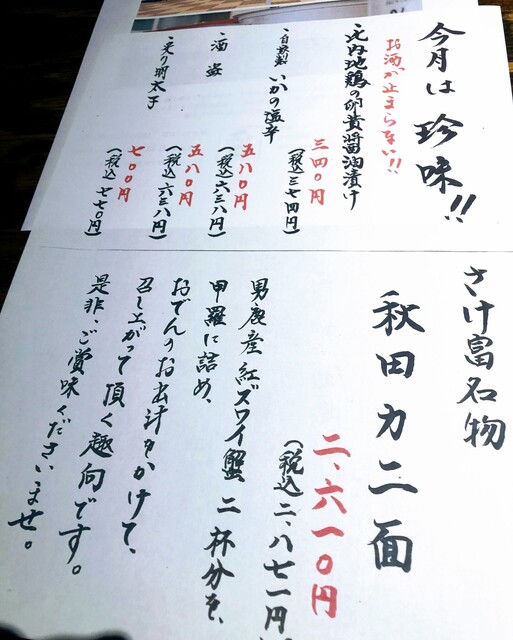 今月は珍味!!
お酒が止まらない!!
・比内地鶏の卵黄醤油漬け
三四〇円
(税込三七四円)
・自家製 いかの塩辛
五八〇円
(税込六三八円)
・酒盗
五八〇円
(税込六三八円)
・炙り明太子
七〇〇円
(税込七七〇円)
さけ富名物
秋田カニ面
二、六一〇円
(税込二、八七一円
男鹿産紅ズワイ蟹二杯分を、
甲羅に詰め、
おでんのお出汁をかけて、
召し上がって頂く趣向です。
是非、ご賞味くださいませ。